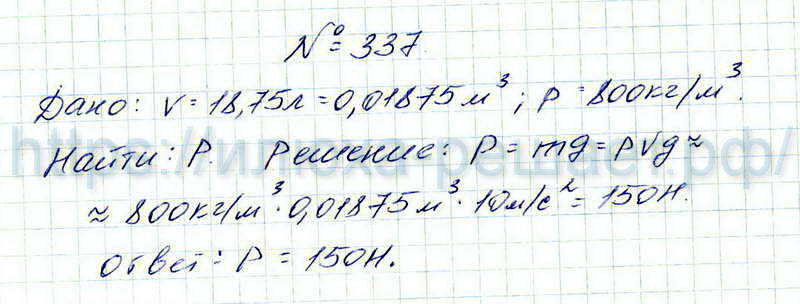 № 337.
Дано: V = 18,75л = 0,01875 м³; ρ = 800кг/м³.
Найти: P. Решение: P = mg = ρVg ≈
≈ 800кг/м³ · 0,01875 м³ · 10м/с² = 150Н.
Ответ: P = 150Н.